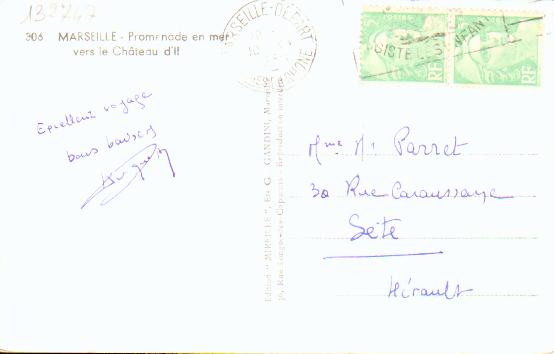 132747
306 MARSEILLE - Promenade en mer
vers le Château d'If
MARSEILLE-DÉPART
RF
RF
Excellent voyage
bons baisers
Edition "MIREILLE", Ets G. GANDINI, Marseille
Reproduction interdite
Mme Parret
30 Rue Caraussane
Sète
Hérault